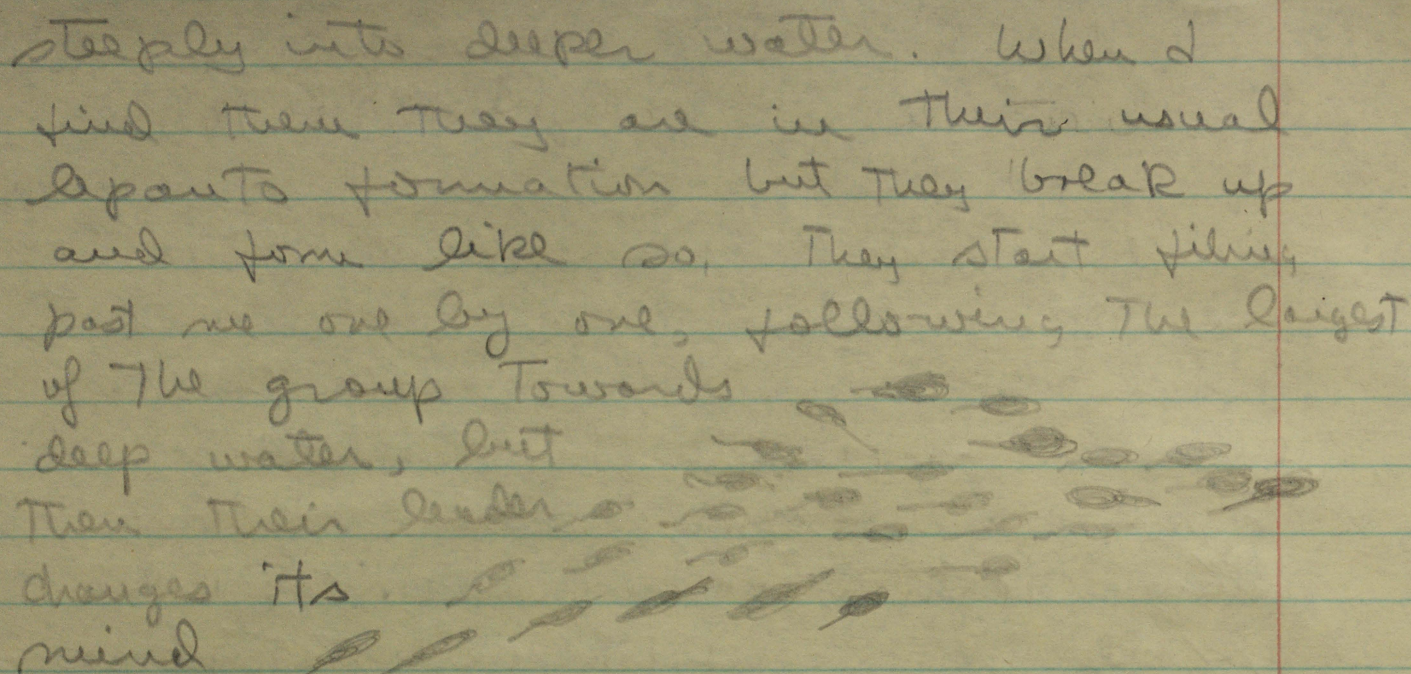 steeply into deeper water. When I
find them they are in their usual
lepanto formation but they break up
and form like so. They start filing
past me one by one, following the largest
of the group towards
deep water, but
then their leader
changes its
mind